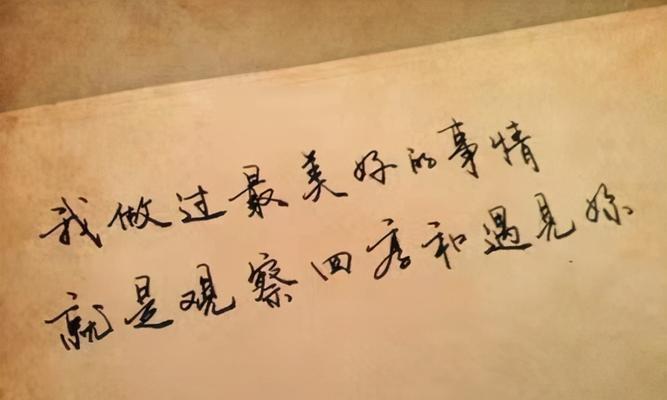 我做过最美好的事情
就是观察四和遇見妳